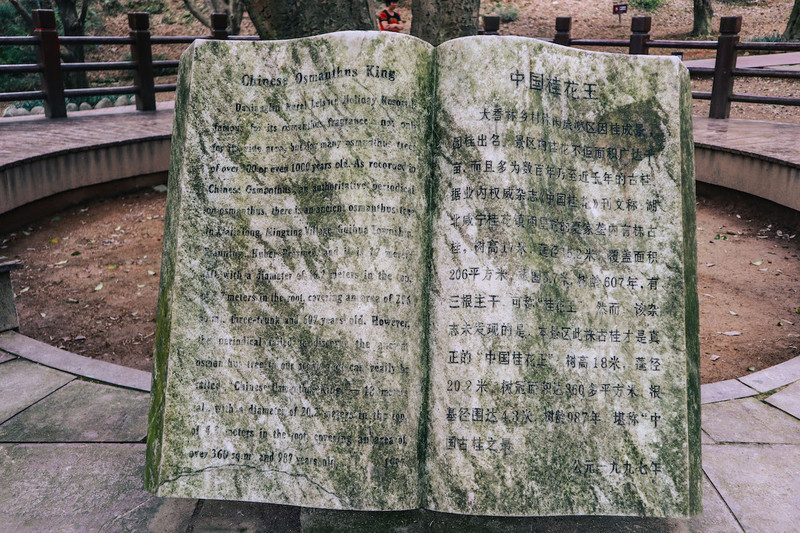 Chinese Osmanthus King
Holiday Resort is
famous for its romantic fragrance not only
for the wide area, but for many osmanthus trees
of over 200 or even 1000 years old. As recorded in
Chinese Osmanthus, an authoritative periodical
on osmanthus, there is an ancient osmanthus tree
Village, Guihua Township
Hubei
tall, with a diameter of 16.2 meters in the top,
meters in the root, covering an area of 206
three-trunk and 607 years old. However,
the periodical
osmanthus tree in our can really be
called "Chinese Osmanthus King" 18 meters
tall, with a diameter of 20.2 meters in the top,
of 4.3 meters in the root, covering an area of
over 360 sq.m. and 987 years old. 1997
中国桂花王
大香林乡村休闲度假区因桂成景,
因桂出名。景区内桂花不但面积广达
亩,而且多为数百年乃至近千年的古桂。
据业内权威杂志《中国桂花》刊文称:湖
北咸宁桂花镇内有古
桂,树高17米,蓬径16.2米,覆盖面积
206平方米,树龄607年,有
三根主干,可称"桂花王"。然而,该杂
志未发现的是,本景区此株古桂才是真
正的"中国桂花王",树高18米,蓬径
20.2米,树冠面积达360多平方米,根
基径围达4.3米,树龄987年,堪称"中
国古桂之最"。
公元一九九七年